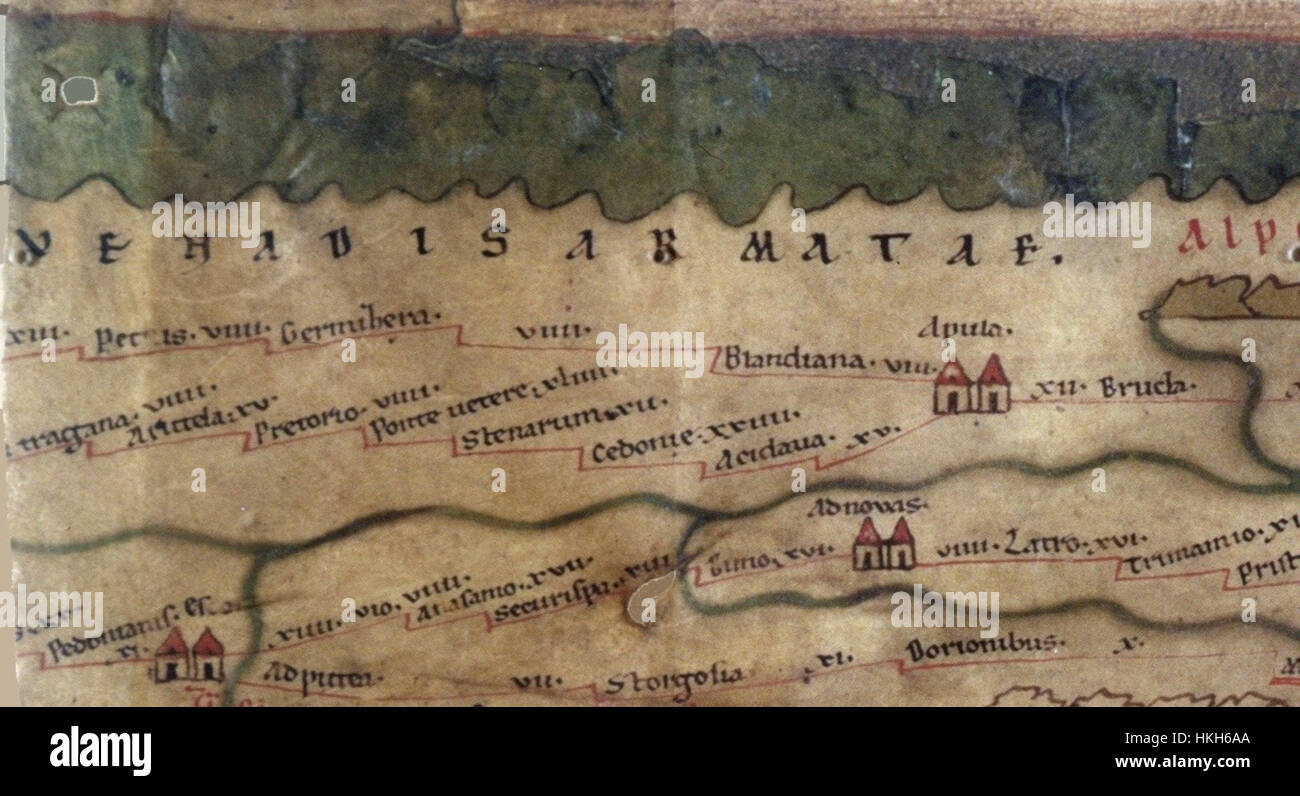 VEHADISARMATAE.
Alp
XIII. Petris. VIIII. Germihera. VIIII. Apula.
Blandiana. VIII. XII. Brucla.
tragana. VIIII. Arutela. XV. Pretorio. VIIII. Ponte uetere. XLIIII. Stenarum. XII. Cedonie. XXIIII. Acidaua. XV.
Adnovas.
XVI. VIIII. Latro. XVI. Trimamio. XI
Prist
Pedonianis. XI. XIIII. VIO. VIIII. Anasamo. XVII. Securispa. XIII
Adputea. VII. Storgosia XI. Dorionibus. X.
a alamy stock photo
HKH6AA
www.alamy.com